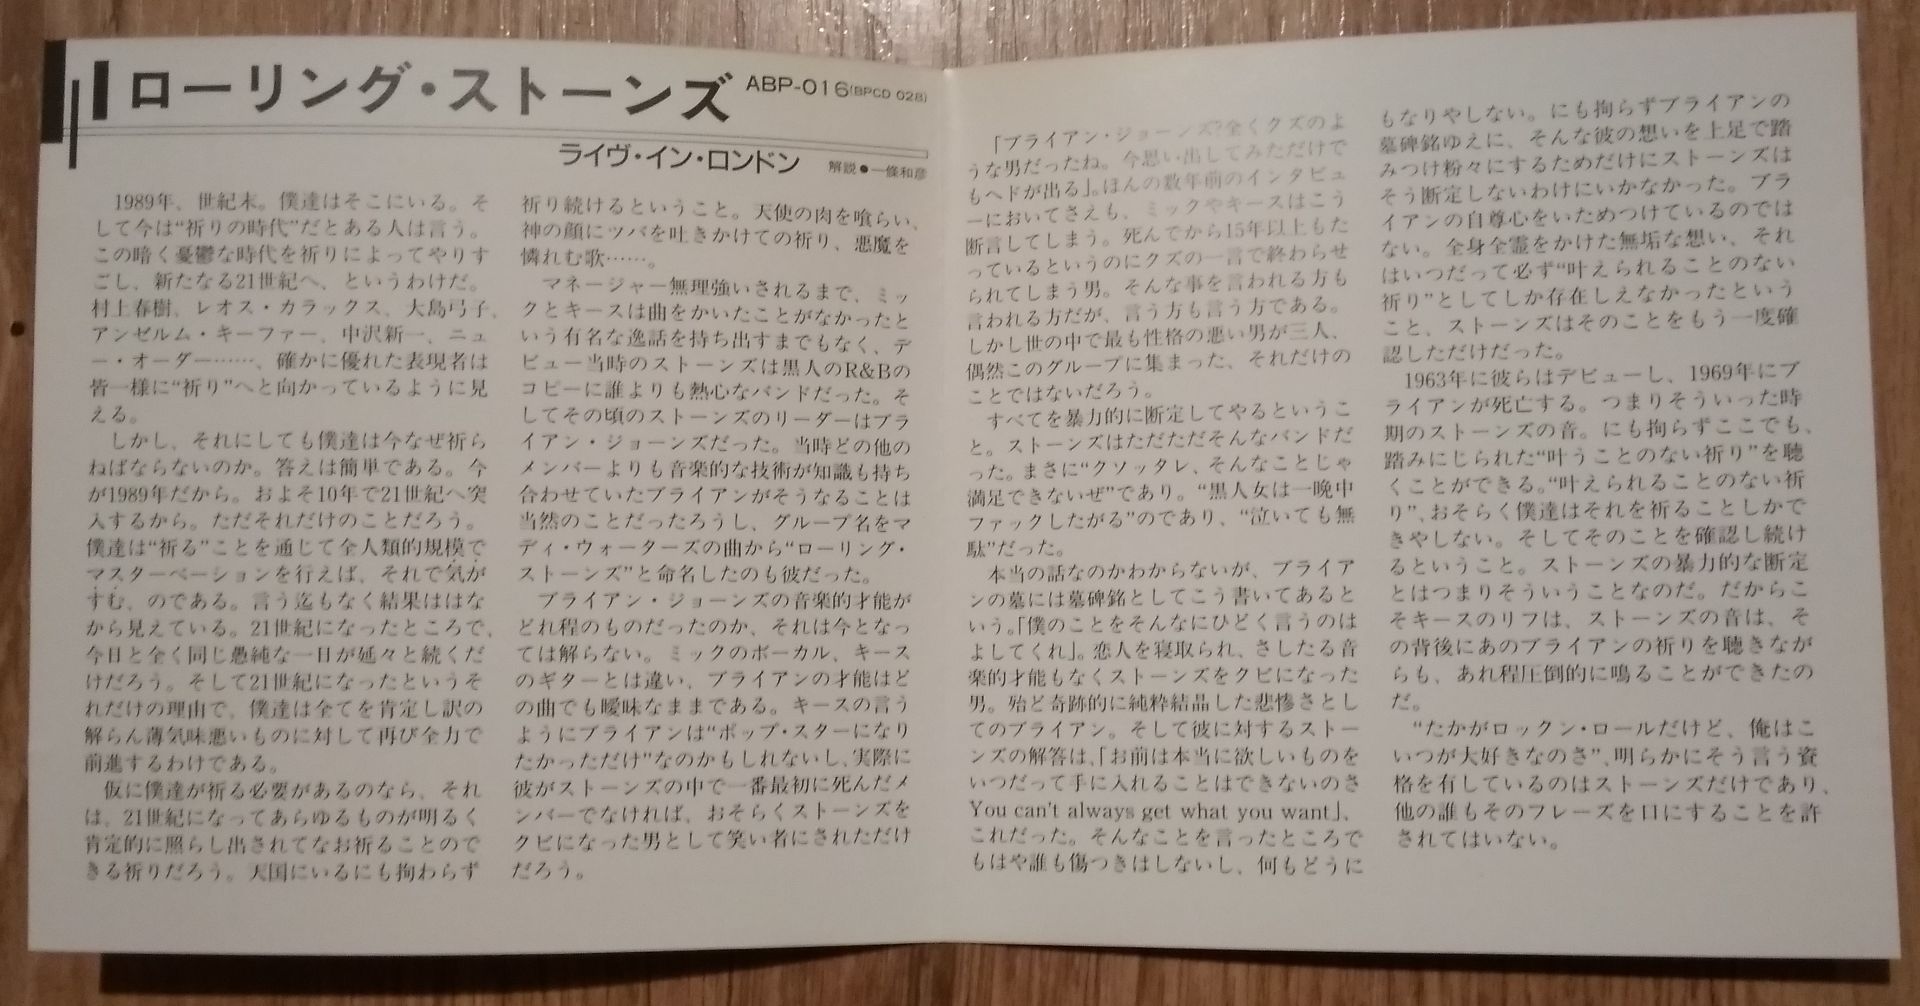 ローリング・ストーンズ ABP-016(BPCD 028)
ライヴ・イン・ロンドン 解説●一條和彦
1989年、世紀末。僕達はそこにいる。そ
して今は“祈りの時代”だとある人は言う。
この暗く憂鬱な時代を祈りによってやりす
ごし、新たなる21世紀へ、というわけだ。
村上春樹、レオス・カラックス、大島弓子、
アンゼルム・キーファー、中沢新一、ニュ
ー・オーダー……、確かに優れた表現者は
皆一様に“祈り”へと向かっているように見
える。
しかし、それにしても僕達は今なぜ祈ら
ねばならないのか。答えは簡単である。今
が1989年だから。およそ10年で21世紀へ突
入するから。ただそれだけのことだろう。
僕達は“祈る”ことを通じて全人類的規模で
マスターベーションを行えば、それで気が
すむ、のである。言う迄もなく結果ははな
から見えている。21世紀になったところで、
今日と全く同じ愚純な一日が延々と続くだ
けだろう。そして21世紀になったというそ
れだけの理由で、僕達は全てを肯定し訳の
解らん薄気味悪いものに対して再び全力で
前進するわけである。
仮に僕達が祈る必要があるのなら、それ
は、21世紀になってあらゆるものが明るく
肯定的に照らし出されてなお祈ることので
きる祈りだろう。天国にいるにも拘わらず
祈り続けるということ。天使の肉を喰らい、
神の顔にツバを吐きかけての祈り、悪魔を
憐れむ歌……。
マネージャー無理強いされるまで、ミッ
クとキースは曲をかいたことがなかったと
いう有名な逸話を持ち出すまでもなく、デ
ビュー当時のストーンズは黒人のR&Bの
コピーに誰よりも熱心なバンドだった。そ
してその頃のストーンズのリーダーはブラ
イアン・ジョーンズだった。当時どの他の
メンバーよりも音楽的な技術が知識も持ち
合わせていたブライアンがそうなることは
当然のことだったろうし、グループ名をマ
ディ・ウォーターズの曲から“ローリング・
ストーンズ”と命名したのも彼だった。
ブライアン・ジョーンズの音楽的才能が
どれ程のものだったのか、それは今となっ
ては解らない。ミックのボーカル、キース
のギターとは違い、ブライアンの才能はど
の曲でも曖昧なままである。キースの言う
ようにブライアンは“ポップ・スターになり
たかっただけ”なのかもしれないし、実際に
彼がストーンズの中で一番最初に死んだメ
ンバーでなければ、おそらくストーンズを
クビになった男として笑い者にされただけ
だろう。
「ブライアン・ジョーンズ?全くクズのよ
うな男だったね。今思い出してみただけで
もヘドが出る」。ほんの数年前のインタビュ
ーにおいてさえも、ミックやキースはこう
断言してしまう。死んでから15年以上もた
っているというのにクズの一言で終わらせ
られてしまう男。そんな事を言われる方も
言われる方だが、言う方も言う方である。
しかし世の中で最も性格の悪い男が三人、
偶然このグループに集まった、それだけの
ことではないだろう。
すべてを暴力的に断定してやるというこ
と。ストーンズはただただそんなバンドだ
った。まさに“クソッタレ、そんなことじゃ
満足できないぜ”であり。“黒人女は一晩中
ファックしたがる”のであり、“泣いても無
駄”だった。
本当の話なのかわからないが、ブライア
ンの墓には墓碑銘としてこう書いてあると
いう。「僕のことをそんなにひどく言うのは
よしてくれ」。恋人を寝取られ、さしたる音
楽的才能もなくストーンズをクビになった
男。殆ど奇跡的に純粋結晶した悲惨さとし
てのブライアン。そして彼に対するストー
ンズの解答は、「お前は本当に欲しいものを
いつだって手に入れることはできないのさ
You can't always get what you want」、
これだった。そんなことを言ったところで
もはや誰も傷つきはしないし、何もどうに
もなりやしない。にも拘らずブライアンの
墓碑銘ゆえに、そんな彼の想いを上足で踏
みつけ粉々にするためだけにストーンズは
そう断定しないわけにいかなかった。ブラ
イアンの自尊心をいためつけているのでは
ない。全身全霊をかけた無垢な想い、それ
はいつだって必ず“叶えられることのない
祈り”としてしか存在しえなかったという
こと、ストーンズはそのことをもう一度確
認しただけだった。
1963年に彼らはデビューし、1969年にブ
ライアンが死亡する。つまりそういった時
期のストーンズの音。にも拘らずここでも、
踏みにじられた“叶うことのない祈り”を聴
くことができる。“叶えられることのない祈
り”、おそらく僕達はそれを祈ることしかで
きやしない。そしてそのことを確認し続け
るということ。ストーンズの暴力的な断定
とはつまりそういうことなのだ。だからこ
そキースのリフは、ストーンズの音は、そ
の背後にあのブライアンの祈りを聴きなが
らも、あれ程圧倒的に鳴ることができたの
だ。
“たかがロックン・ロールだけど、俺はこ
いつが大好きなのさ”、明らかにそう言う資
格を有しているのはストーンズだけであり、
他の誰もそのフレーズを口にすることを許
されてはいない。